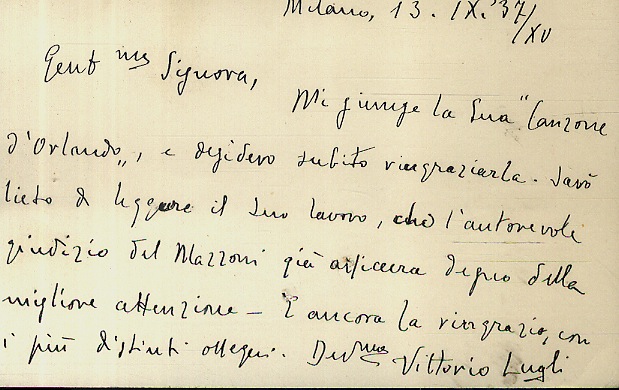 Milano, 13. IX. '37/XV
Gent.ma Signora,
Mi giunge la Sua "Canzone
d'Orlando„, e desidero subito ringraziarla. Sarò
lieto di leggere il Suo lavoro, che l'autorevole
giudizio del Mazzoni già assicura degno della
migliore attenzione - E ancora la ringrazio, con
i più distinti ossequi. Dev.mo Vittorio Lugli